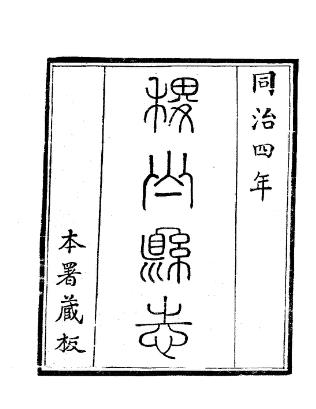 同治四年
稷山縣志
本署蔵板